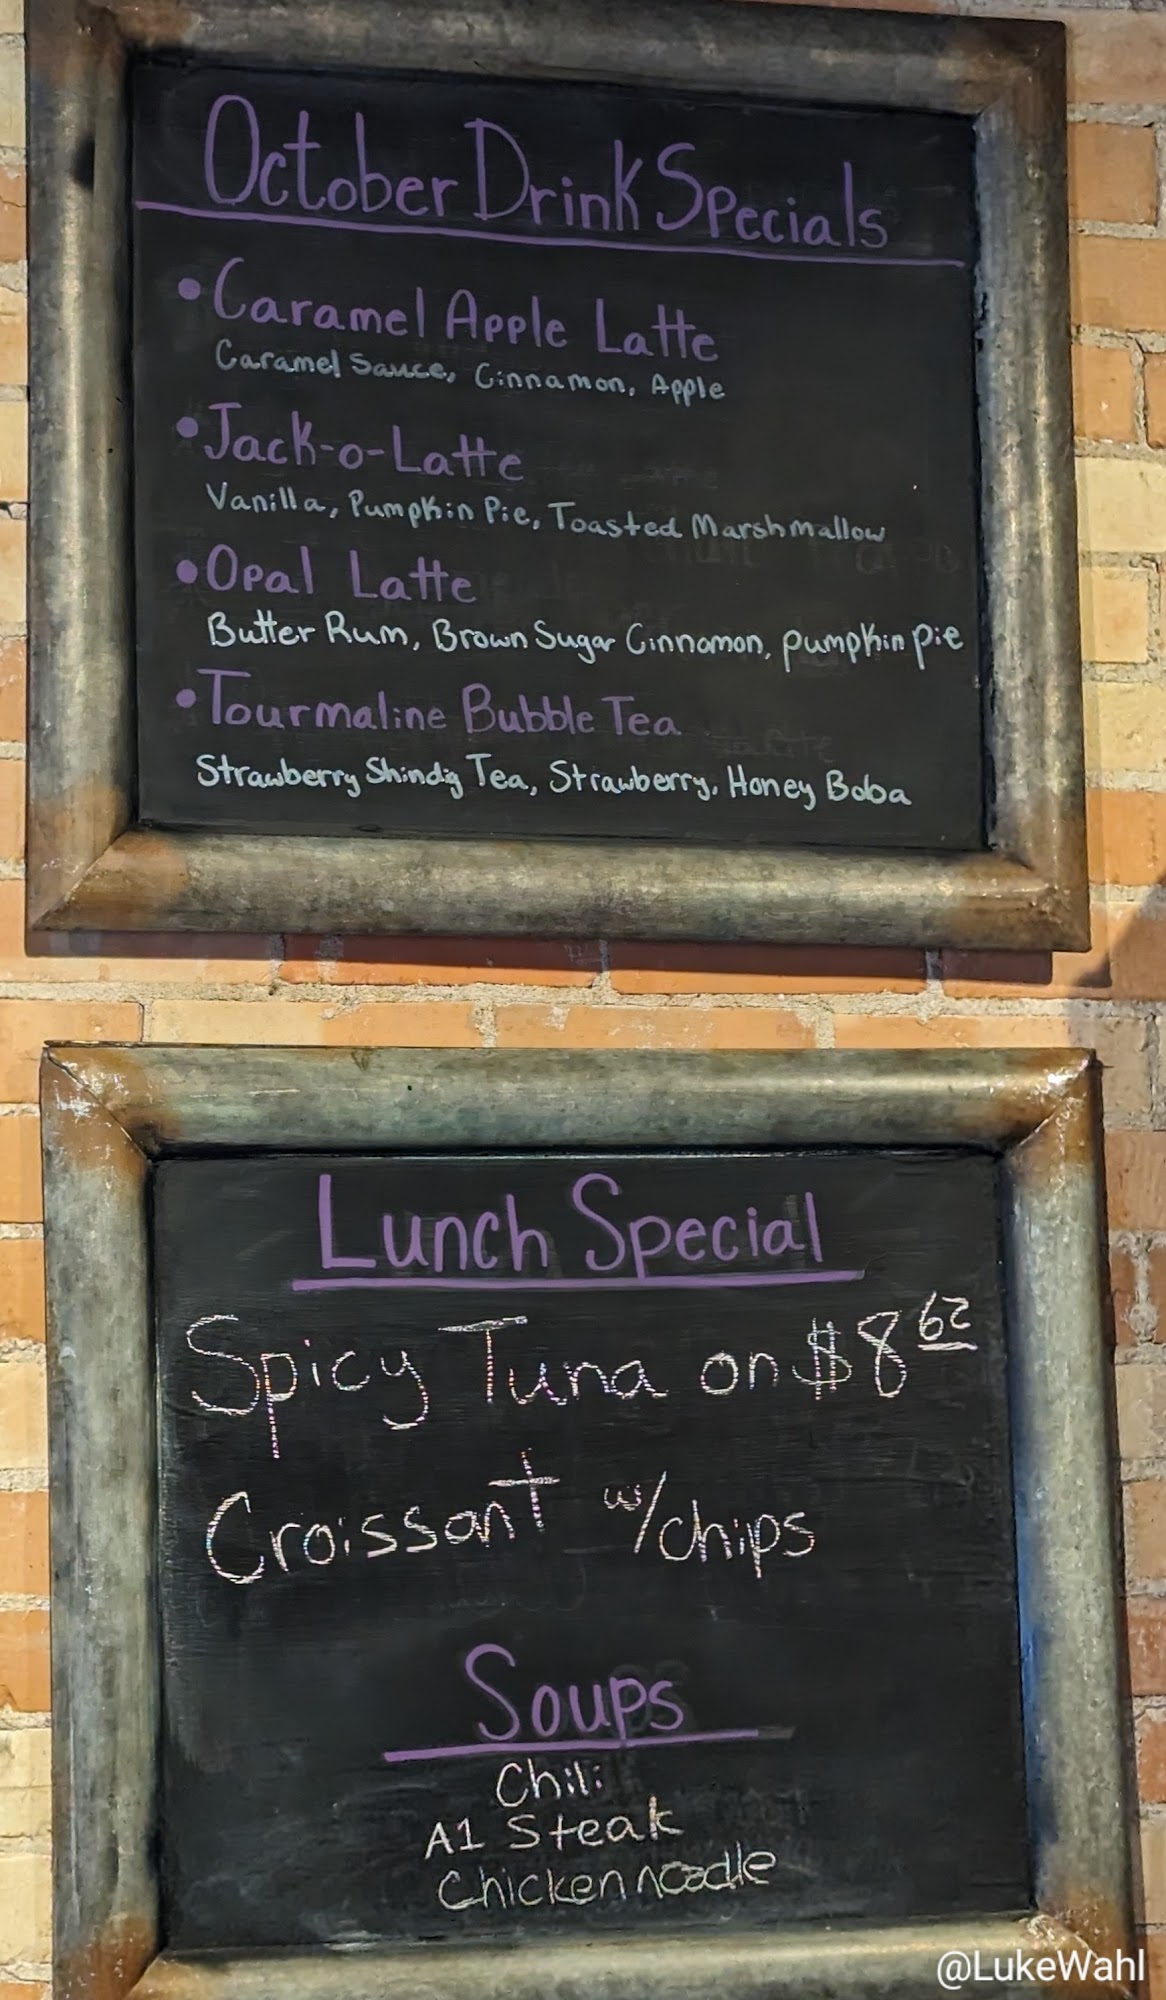 October Drink Specials
• Caramel Apple Latte
Caramel Sauce, Cinnamon, Apple
• Jack-o-Latte
Vanilla, Pumpkin Pie, Toasted Marshmallow
• Opal Latte
Butter Rum, Brown Sugar Cinnamon, pumpkin pie
• Tourmaline Bubble Tea
Strawberry Shindig Tea, Strawberry, Honey Boba
Lunch Special
Spicy Tuna on $8 62
Croissant w/chips
Soups
Chili
A1 Steak
Chicken noodle
@LukeWahl